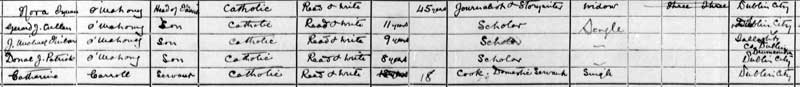 Nora O'Mahony Head of Family Catholic Read & write 45 years Journalist & Storywriter Widow Three Three Dublin City
Gerard J. Cullen O'Mahony Son Catholic Read & write 11 years Scholar Single Dublin City
J. Michael O'Mahony Son Catholic Read & write 9 years Scholar Co. Dublin
Donal J. Patrick O'Mahony Son Catholic Read & write 8 years Scholar Dublin City
Catherine Carroll Servant Catholic Read & write 18 Cook; Domestic Servant Single Dublin City